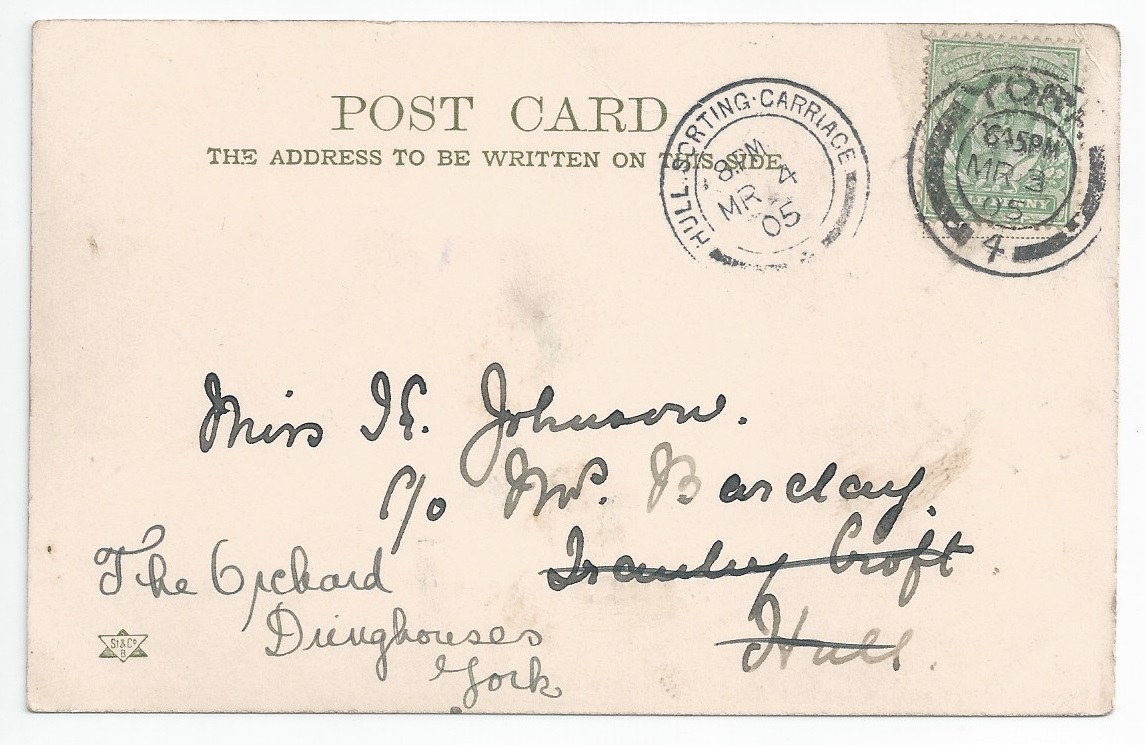 POST CARD
THE ADDRESS TO BE WRITTEN ON THIS SIDE.
HULL SORTING·CARRIAGE
8.PM
MR 4
05
YORK
6 45PM
MR 3
05
4
POSTAGE
Miss K. Johnson.
c/o Mrs. Barclay.
Croft
Hull.
The Orchard
Dringhouses
York
St & Co
B